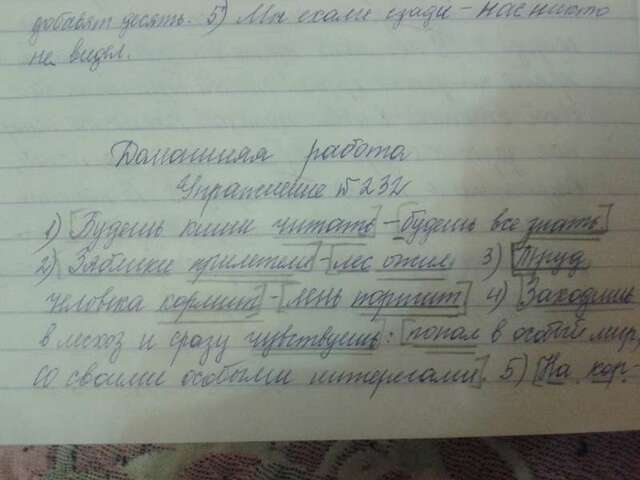 добавят десять. 5) Мы ехали сзади - нас никто
не видел.
Домашняя работа
Упражнение № 232
1) [Будешь книги читать] - [будешь все знать]
2) [Зяблики прилетели] - [лес ожил 3) [Труд
человека кормит] - [лень портит] 4) [Заходишь
в лесхоз и сразу чувствуешь: [попал в особый мир,
со своими особыми интересами]. 5) [На кор-